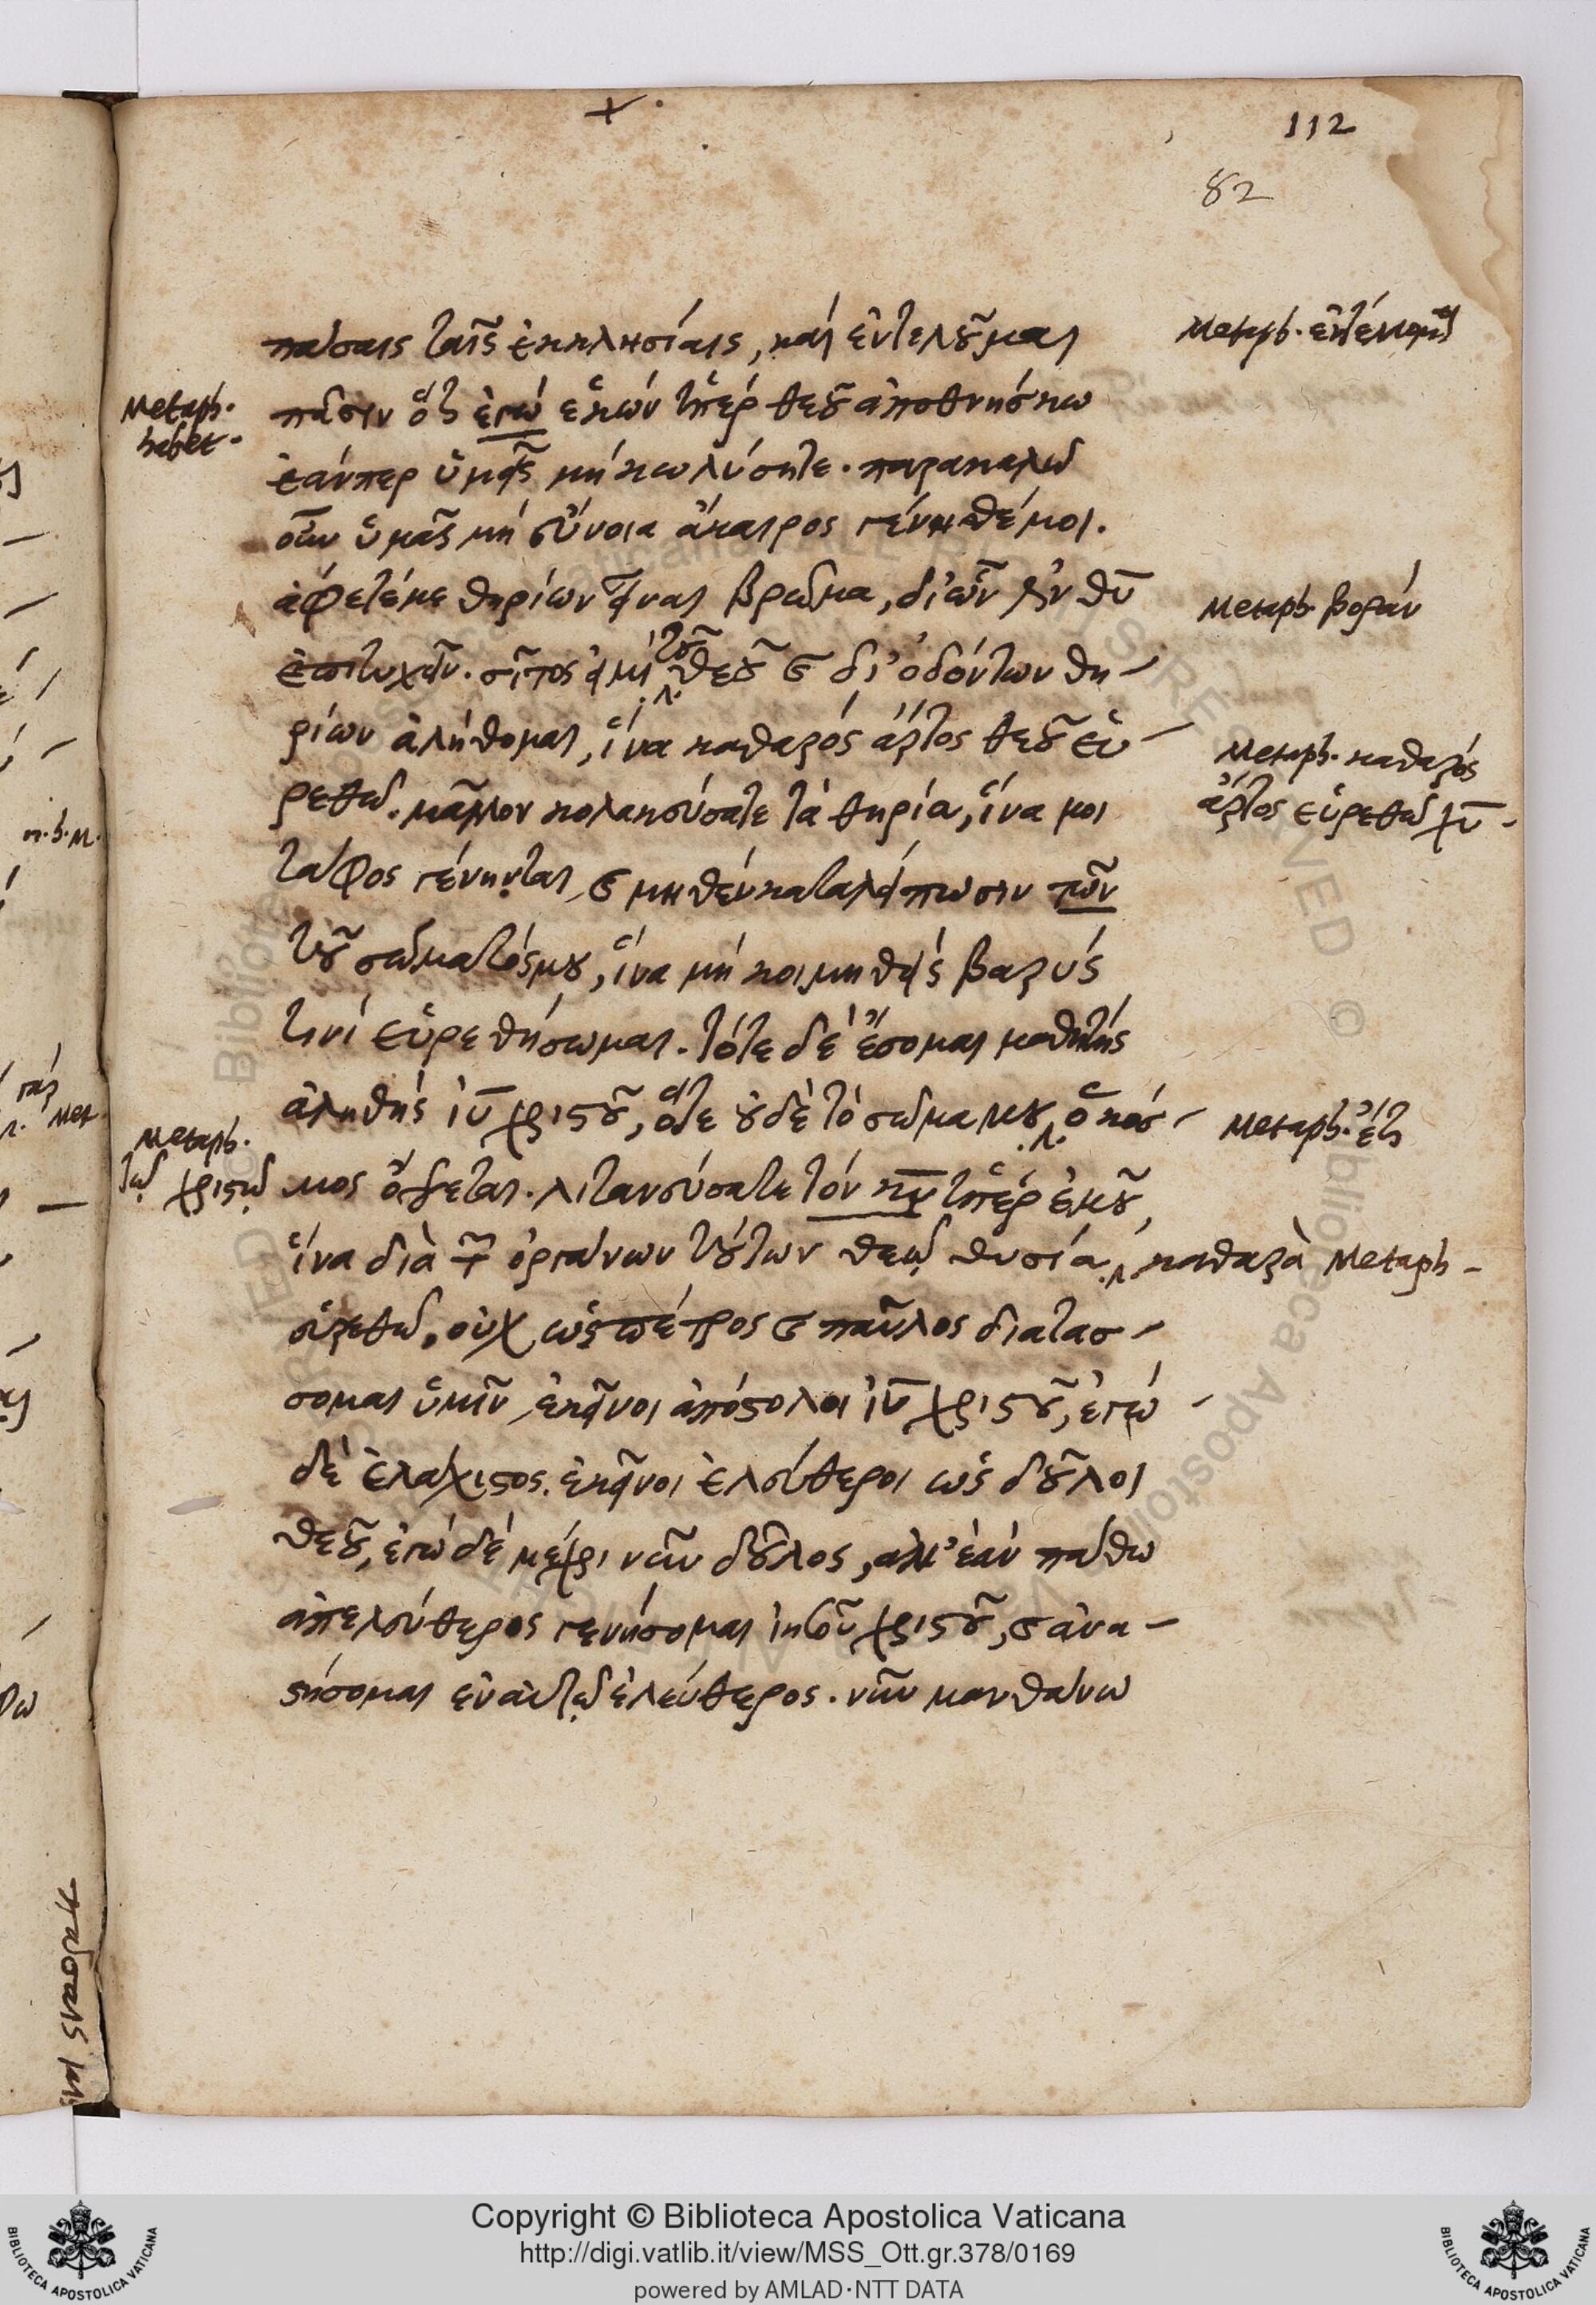 112
82
πάσαις ταῖς ἐκκλησίαις, καὶ ἐντελοῦμαι
Metaph. ἐντέλλομαι
Metaph. habet.
πᾶσιν ὅτι ἐγὼ ἑκὼν ὑπὲρ θεοῦ ἀποθνήσκω
ἐάνπερ ὑμεῖς μὴ κωλύσητε. παρακαλῶ
οὖν ὑμᾶς μὴ εὔνοια ἄκαιρος γένησθέ μοι.
ἄφετέ με θηρίων εἶναι βρῶμα, δι' ὧν ἐστὶν θῡ
Metaph. βορὰν
ἐπιτυχεῖν. σῖτός εἰμι τοῦ θεοῦ καὶ δι' ὀδόντων θη-
ρίων ἀλήθομαι, ἵνα καθαρὸς ἄρτος θεοῦ εὑ-
Metaph. καθαρὸς
ἄρτος εὑρεθῶ χῡ.
ρεθῶ. μᾶλλον κολακεύσατε τὰ θηρία, ἵνα μοι
τάφος γένηνται, καὶ μηθὲν καταλείπωσιν τῶν
τοῦ σώματός μου, ἵνα μὴ κοιμηθεὶς βαρύς
τινι εὑρεθήσωμαι. τότε δὲ ἔσομαι μαθητὴς
ἀληθὴς ἰῡ χριστοῦ, ὅτε οὐδὲ τὸ σῶμά μου ὁ κόσ-
Metaph. ἔτι
Metaph.
τῷ χριστῷ
μος ὄψεται. λιτανεύσατε τὸν κ̅ν̅ ὑπὲρ ἐμοῦ,
ἵνα διὰ τῶν ὀργάνων τούτων θεῷ θυσία
καθαρὰ Metaph.
εὑρεθῶ. οὐχ ὡς πέτρος καὶ παῦλος διατάσ-
σομαι ὑμῖν, ἐκεῖνοι ἀπόστολοι ἰῡ χριστοῦ, ἐγὼ
δὲ ἐλάχιστος. ἐκεῖνοι ἐλεύθεροι ὡς δοῦλοι
θεοῦ, ἐγὼ δὲ μέχρι νῦν δοῦλος, ἀλλ' ἐὰν πάθω
ἀπελεύθερος γενήσομαι ἰησοῦ χριστοῦ, καὶ ἀνα-
στήσομαι ἐν αὐτῷ ἐλεύθερος. νῦν μανθάνω
πάσαις
Copyright © Biblioteca Apostolica Vaticana
http://digi.vatlib.it/view/MSS_Ott.gr.378/0169
powered by AMLAD·NTT DATA
BIBLIOTECA APOSTOLICA VATICANA
BIBLIOTECA APOSTOLICA VATICANA